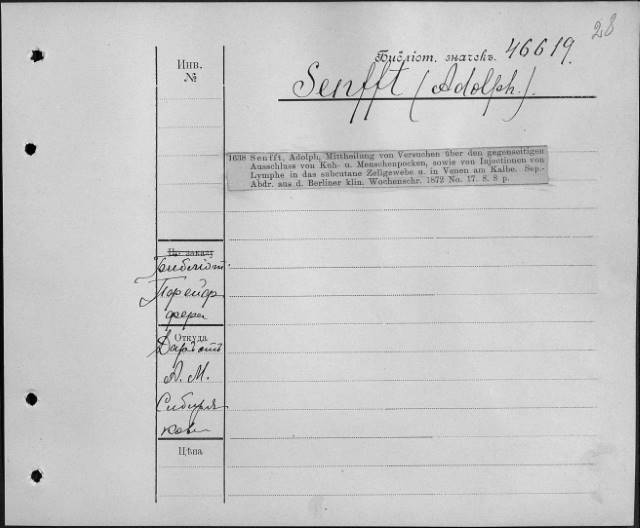 28
Библіот. значекъ. 46619.
Инв.
№
Senfft (Adolph.).
1638 Senfft, Adolph, Mittheilung von Versuchen über den gegenseitigen
Ausschluss von Kuh- u. Menschenpocken, sowie von Injectionen von
Lymphe in das subcutane Zellgewebe u. in Venen am Kalbe. Sep.-
Abdr. aus d. Berliner klin. Wochenschr. 1872 No. 17. 8. 8 p.
По заказу
Откуда
Даръ отъ
А. М.
Сибиря
кова
Цѣна